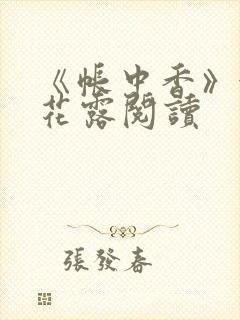 《帳中香》
花露閱讀
張發春